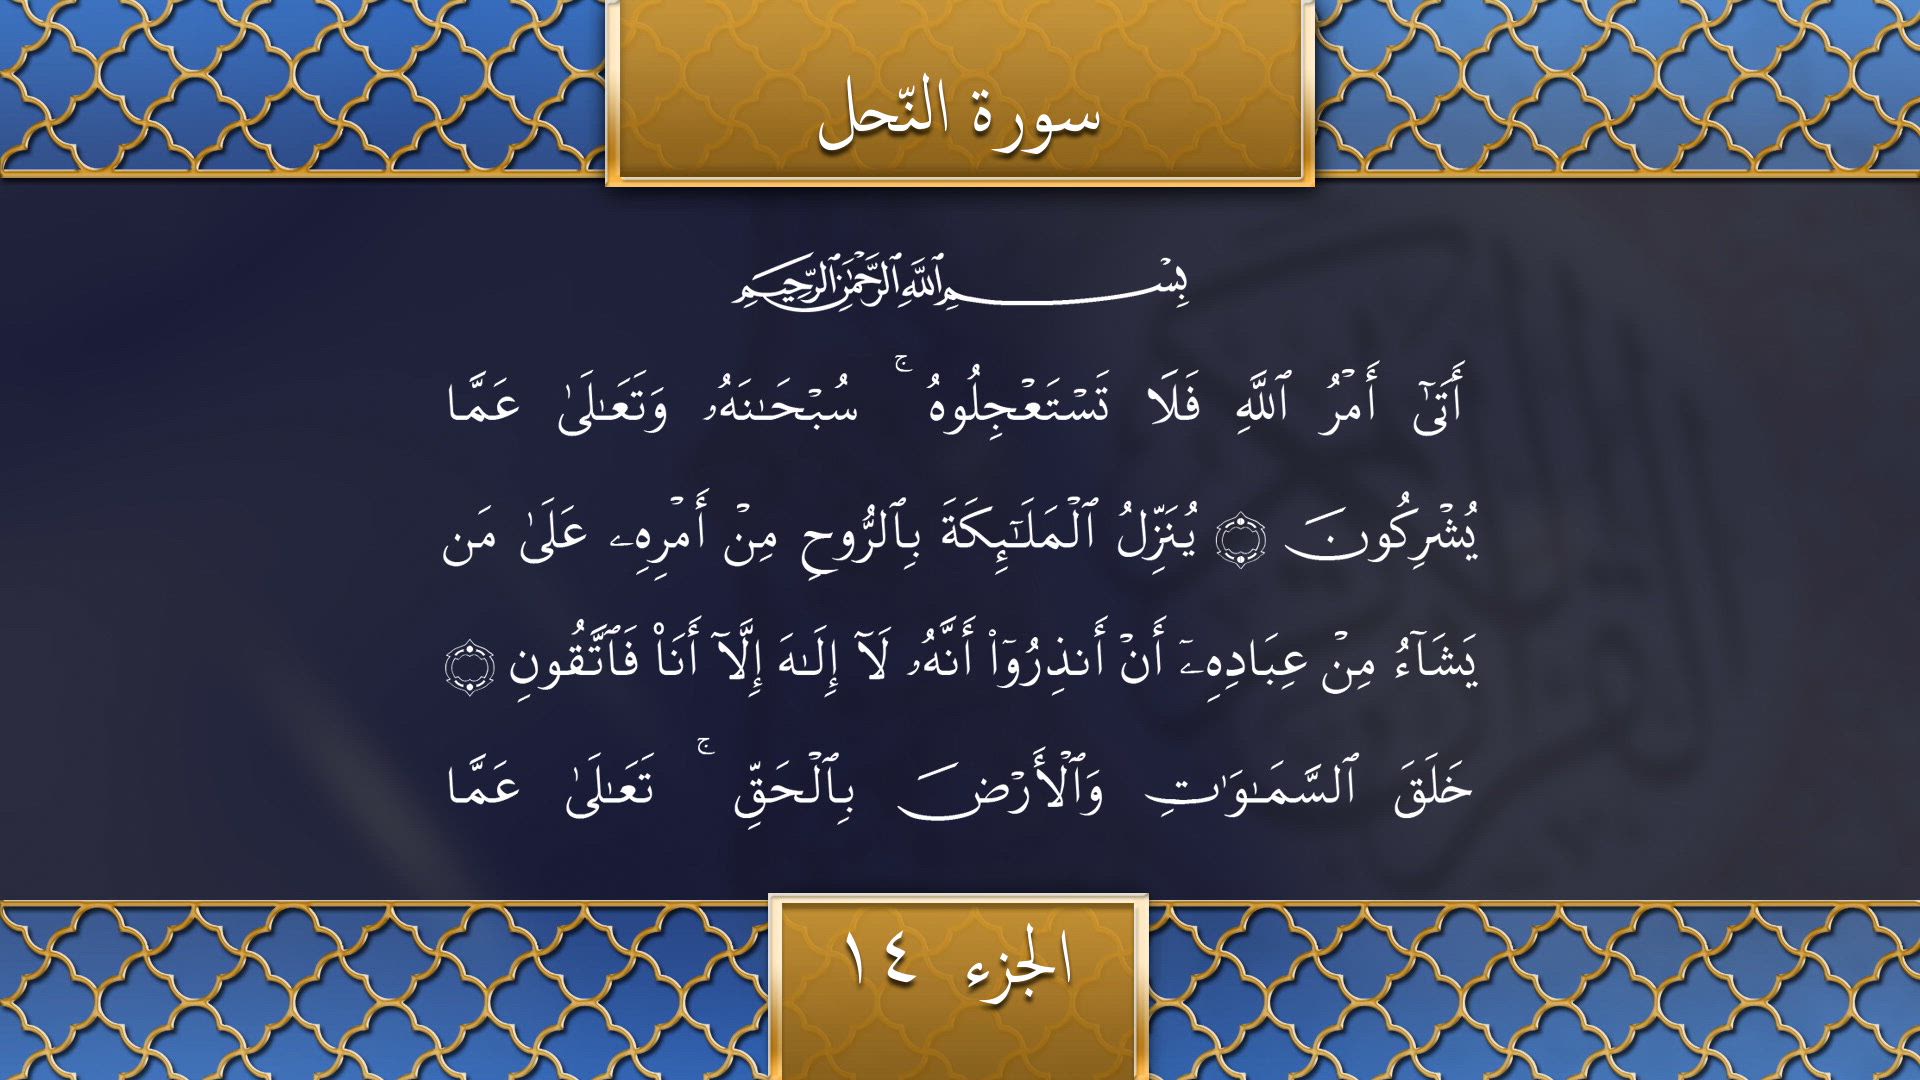 سورة النّحل
بِسْمِ ٱللَّهِ ٱلرَّحْمَٰنِ ٱلرَّحِيمِ
أَتَىٰٓ أَمْرُ ٱللَّهِ فَلَا تَسْتَعْجِلُوهُ ۚ سُبْحَـٰنَهُۥ وَتَعَـٰلَىٰ عَمَّا
يُشْرِكُونَ ۝ يُنَزِّلُ ٱلْمَلَـٰٓئِكَةَ بِٱلرُّوحِ مِنْ أَمْرِهِۦ عَلَىٰ مَن
يَشَآءُ مِنْ عِبَادِهِۦٓ أَنْ أَنذِرُوٓا۟ أَنَّهُۥ لَآ إِلَـٰهَ إِلَّآ أَنَا۠ فَٱتَّقُونِ ۝
خَلَقَ ٱلسَّمَـٰوَٰتِ وَٱلْأَرْضَ بِٱلْحَقِّ ۚ تَعَـٰلَىٰ عَمَّا
الجزء ١٤